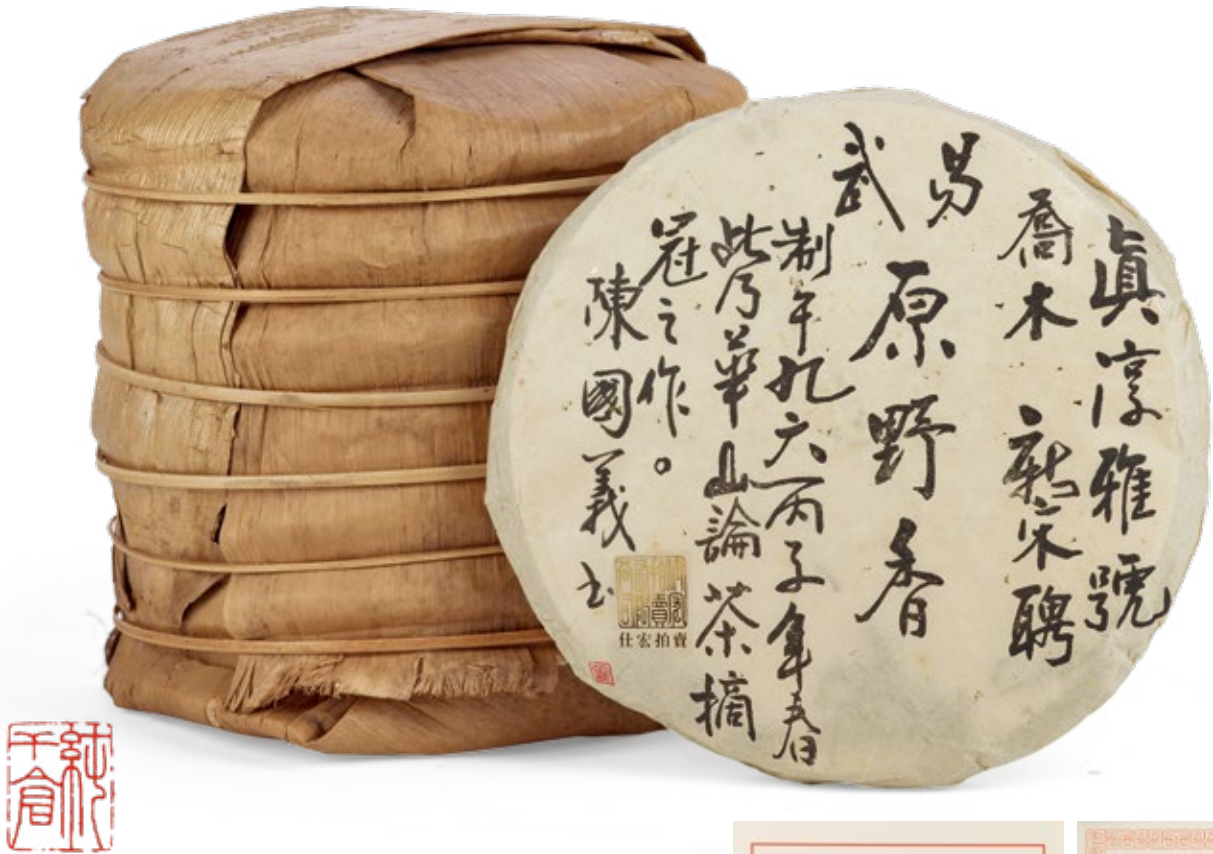 眞淳雅號
喬木 新宋聘
易武
原野香
制于九六丙子年春
此乃華山論茶摘
冠之作。
陳國義书
仕宏拍賣
純干倉